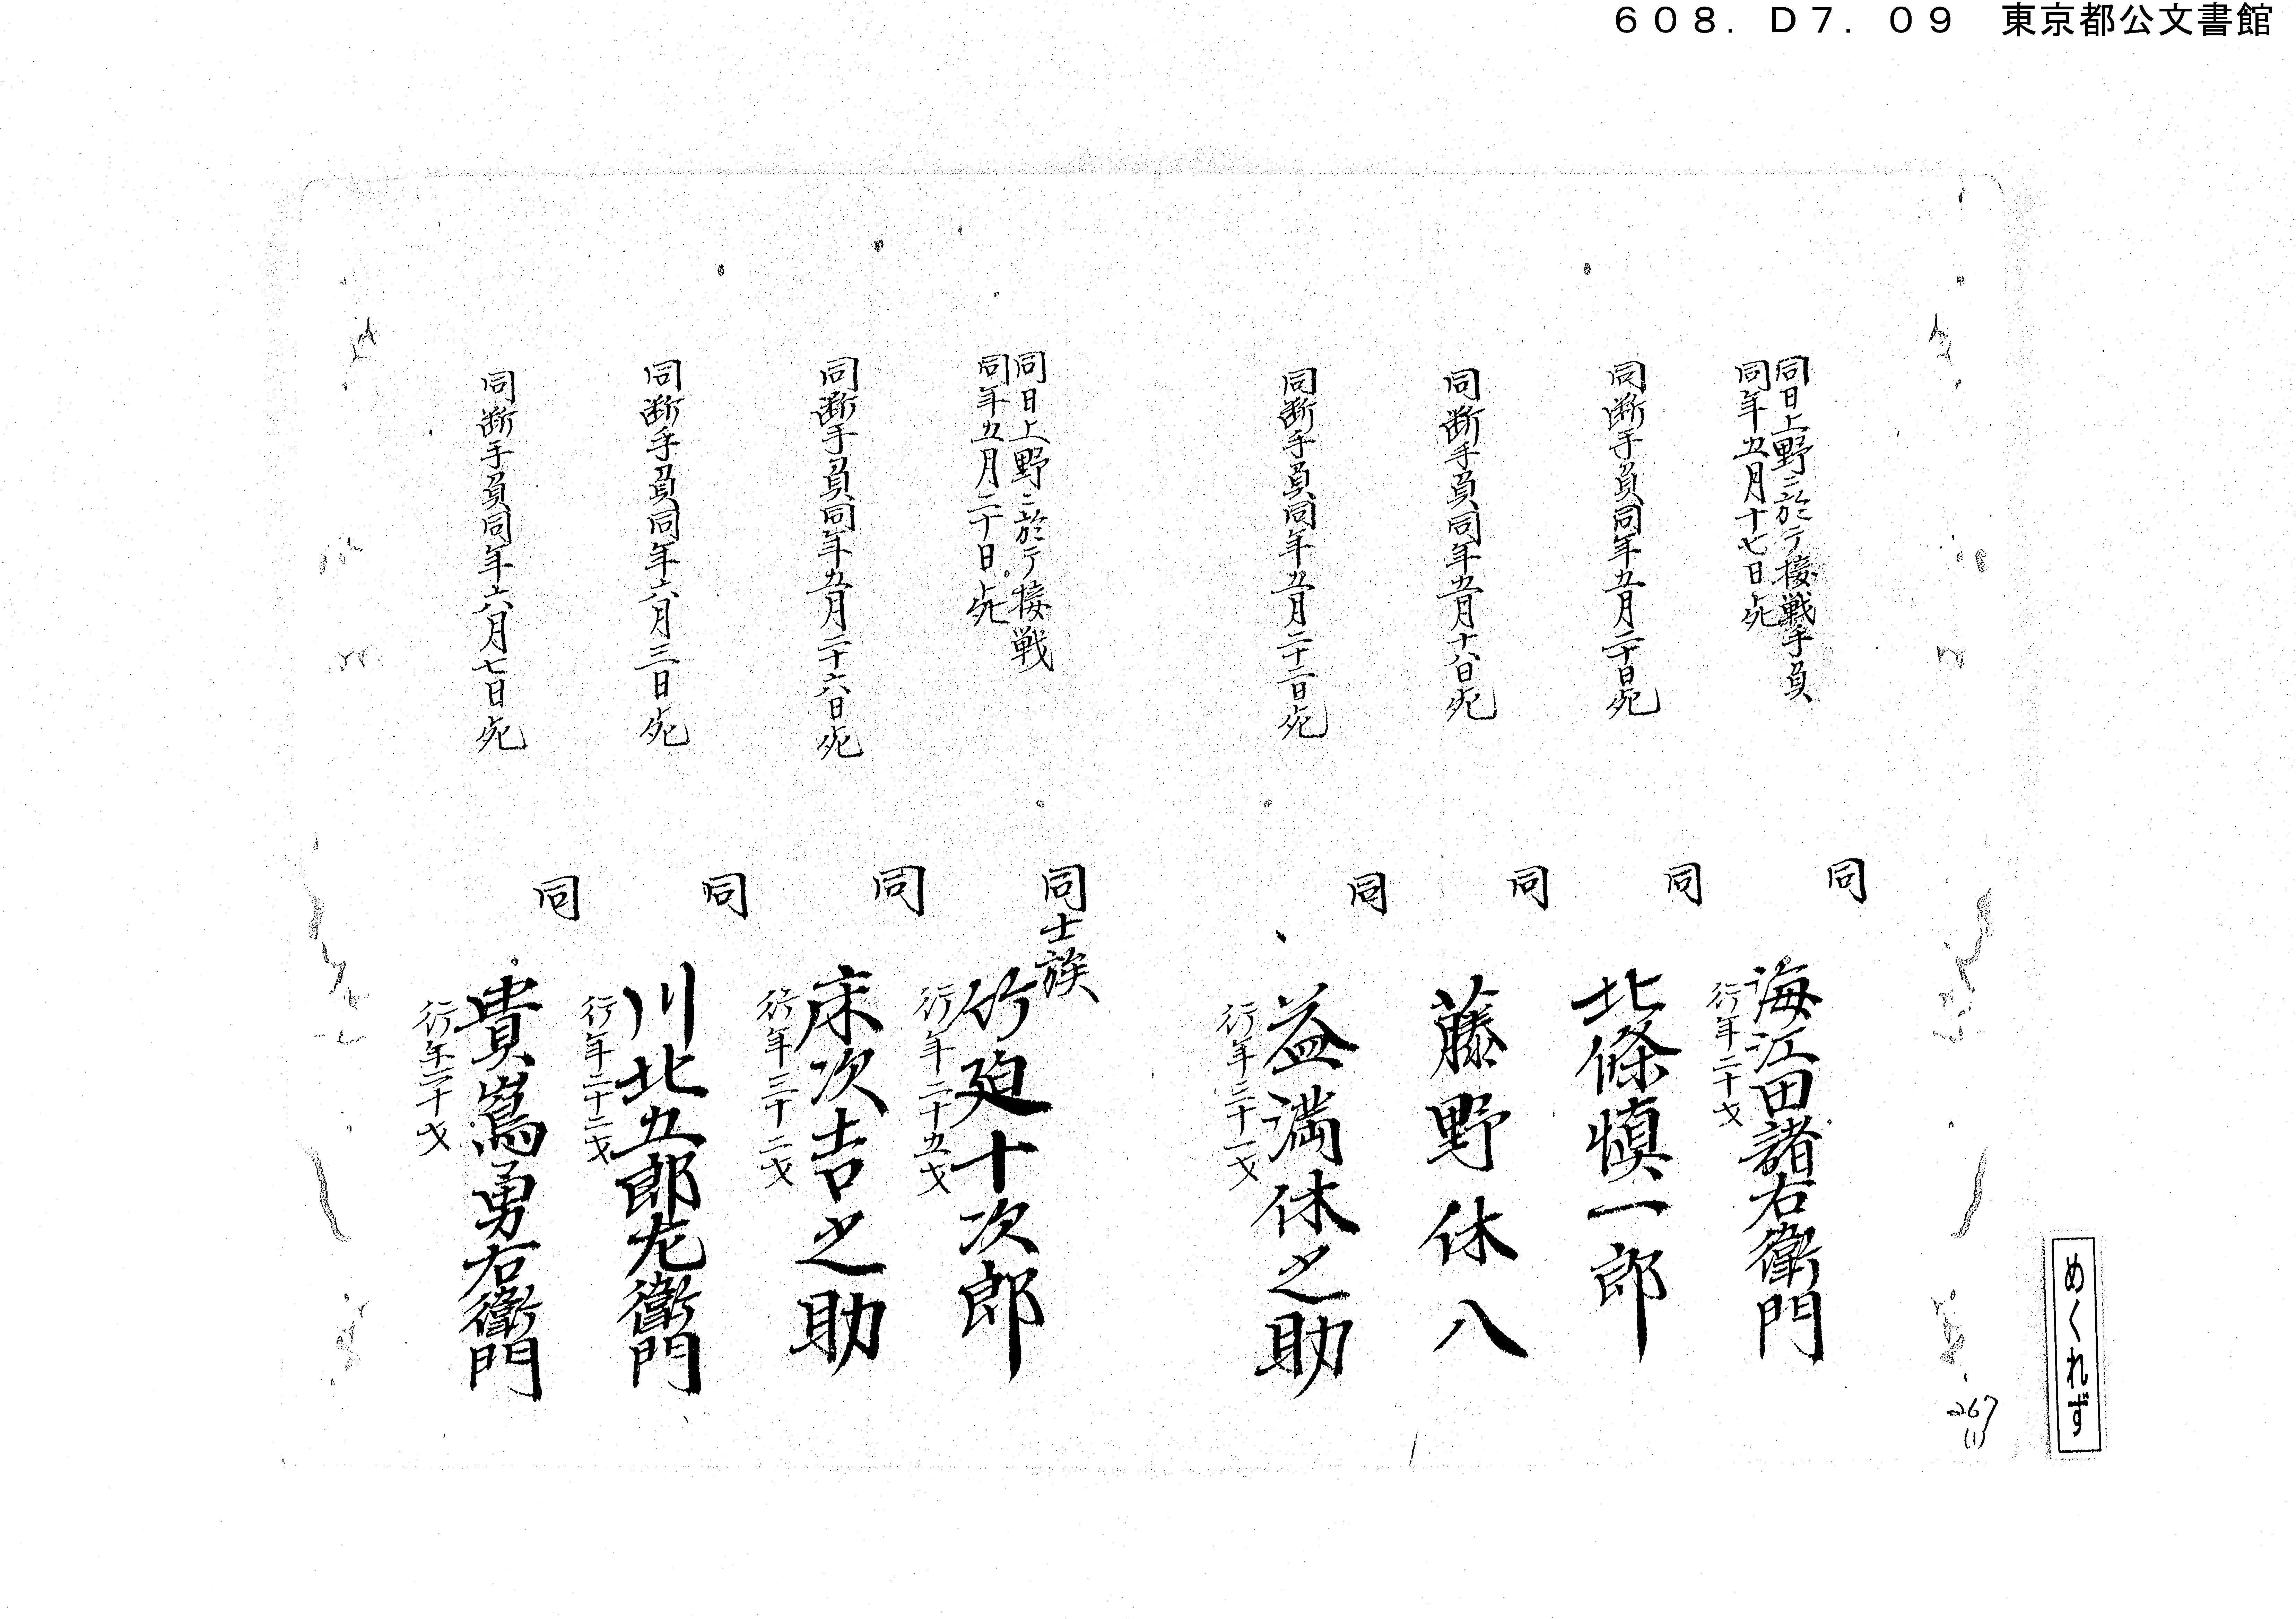 608. D7. 09 東京都公文書館
同日上野ニ於テ接戦手負
同年五月十七日死
同
海江田諸右衛門
行年二十才
同断手負同年五月二十日死
同
北條慎一郎
同断手負同年五月十八日死
同
藤野休八
同断手負同年五月二十二日死
同
益満休之助
同日上野ニ於テ接戦
同年五月二十日死
同士族
竹廹十次郎
行年二十五才
同断手負同年五月二十六日死
同
床次吉之助
行年三十二才
同断手負同年六月三日死
同
川北五郎左衛門
行年二十二才
同断手負同年六月七日死
同
貴嶌勇右衛門
めくれず
267
(1)